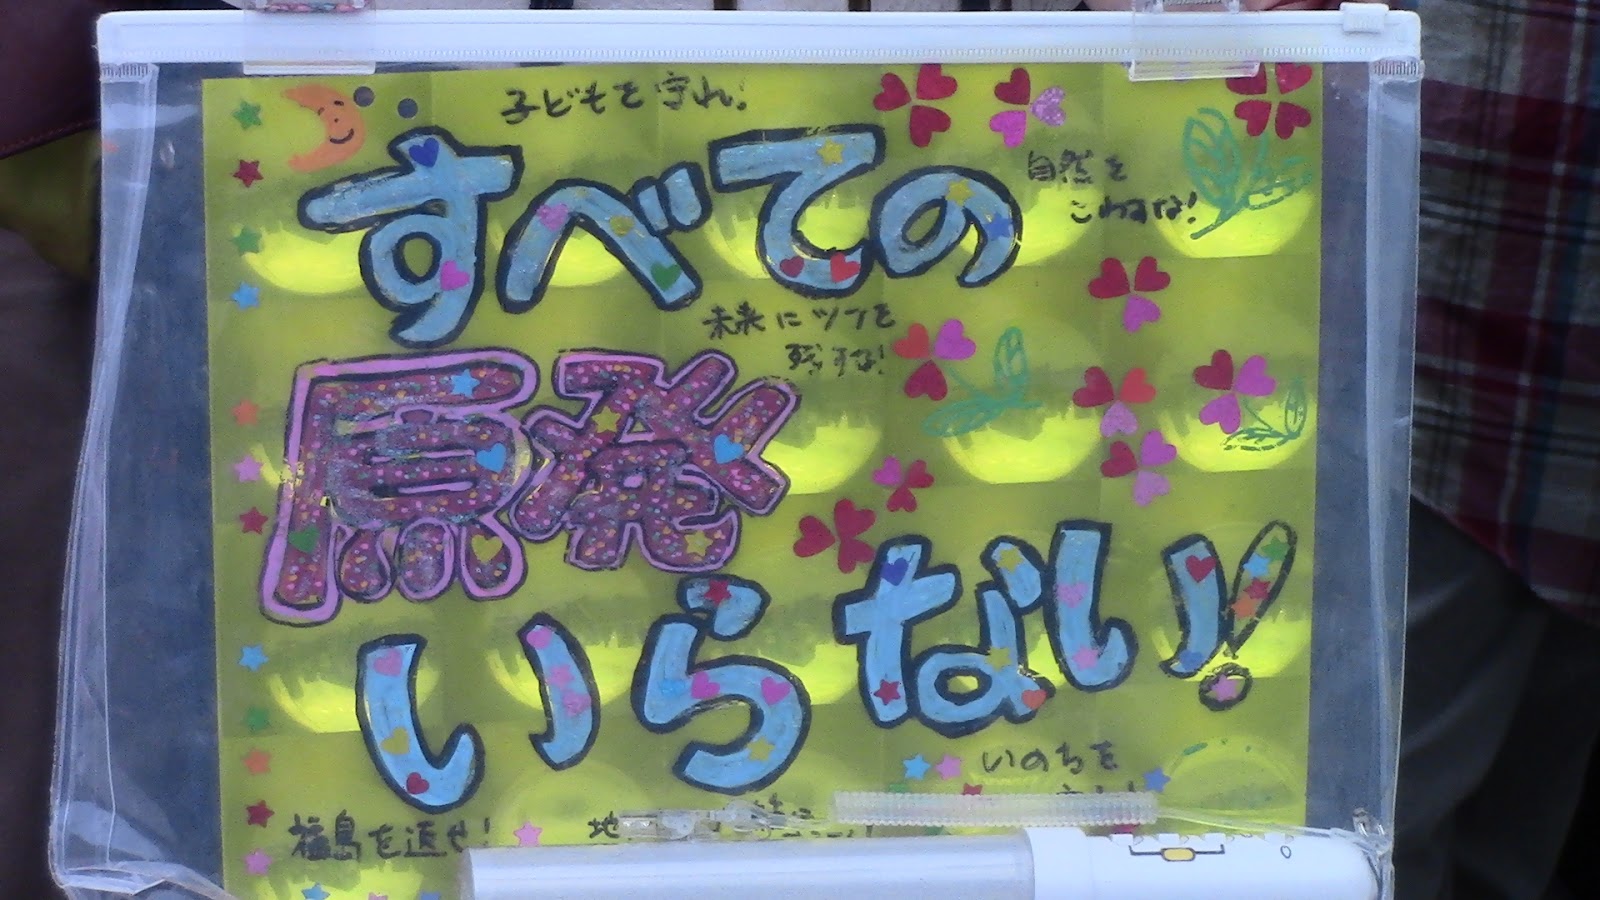 子どもを守れ!
すべての
自然を
こわすな!
未来にツケを
残すな!
原発
いらない!
いのちを
福島を返せ!
地